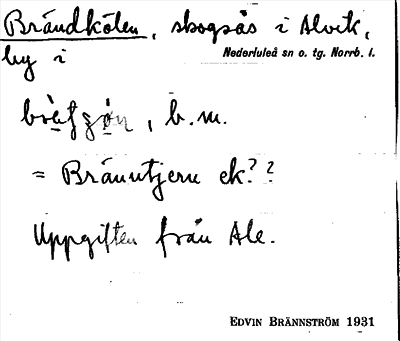 Brändkölen, skogsås i Alvik,
by i Nederluleå sn o. tg. Norrb. l.
, b. m.
= Bränntjern ek? ?
Uppgiften från Ale.
EDVIN BRÄNNSTRÖM 1931